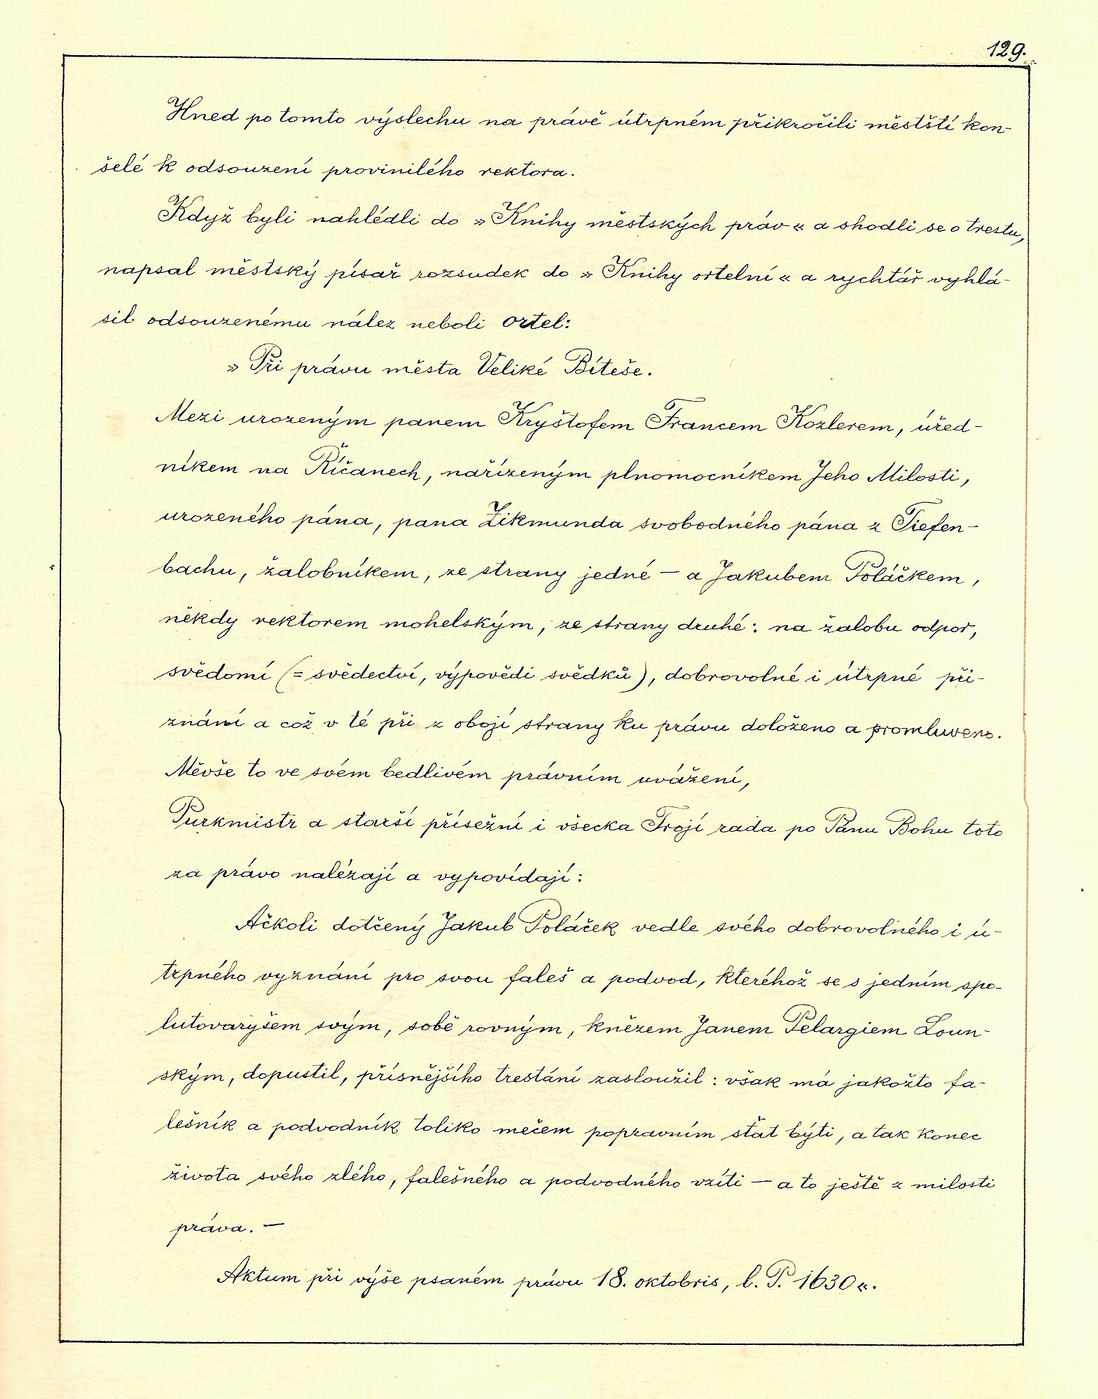 129.
Hned po tomto výslechu na právě útrpném přikročili městští kon-
šelé k odsouzení provinilého rektora.
Když byli nahlédli do »Knihy městských práv« a shodli se o trestu,
napsal městský písař rozsudek do »Knihy ortelní« a rychtář vyhlá-
sil odsouzenému nález neboli ortel:
»Při právu města Veliké Bíteše.
Mezi urozeným panem Kryštofem Francem Kozlerem, úřed-
níkem na Říčanech, nařízeným plnomocníkem Jeho Milosti,
urozeného pána, pana Zikmunda svobodného pána z Tiefen-
bachu, žalobníkem, ze strany jedné — a Jakubem Poláčkem,
někdy rektorem mohelským, ze strany druhé: na žalobu odpor,
svědomí (= svědectví, výpovědi svědků), dobrovolné i útrpné při-
znání a což v té při z obojí strany ku právu doloženo a promluveno.
Měvše to ve svém bedlivém právním uvážení,
Purkmistr a starší přísežní i všecka Trojí rada po Pánu Bohu toto
za právo nalézají a vypovídají:
Ačkoli dotčený Jakub Poláček vedle svého dobrovolného i ú-
trpného vyznání pro svou faleš a podvod, kteréhož se s jedním spo-
lutovaryšem svým, sobě rovným, knězem Janem Pelargiem Loun-
ským, dopustil, přísnějšího trestání zasloužil: však má jakožto fa-
lešník a podvodník toliko mečem popravním sťat býti, a tak konec
života svého zlého, falešného a podvodného vzíti — a to ještě z milosti
práva. —
Aktum při výše psaném právu 18. oktobris, l. P. 1630«.